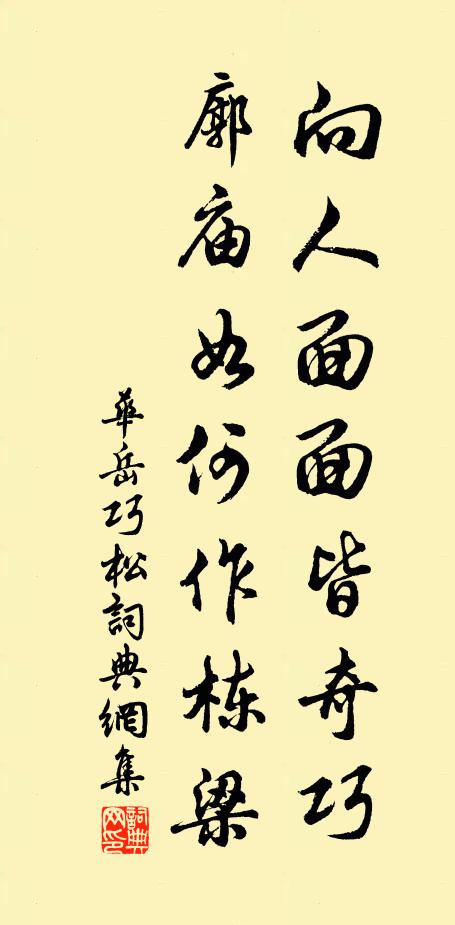 向人面面皆奇巧
廊庙如何作栋梁
華岳巧松詞典網集
詞典网印